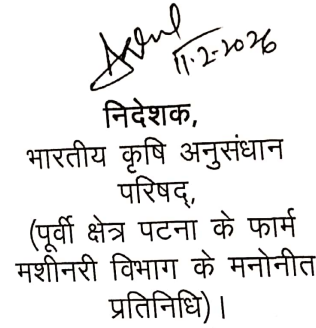 11-2-2026
निदेशक,
भारतीय कृषि अनुसंधान
परिषद्,
(पूर्वी क्षेत्र पटना के फार्म
मशीनरी विभाग के मनोनीत
प्रतिनिधि)।